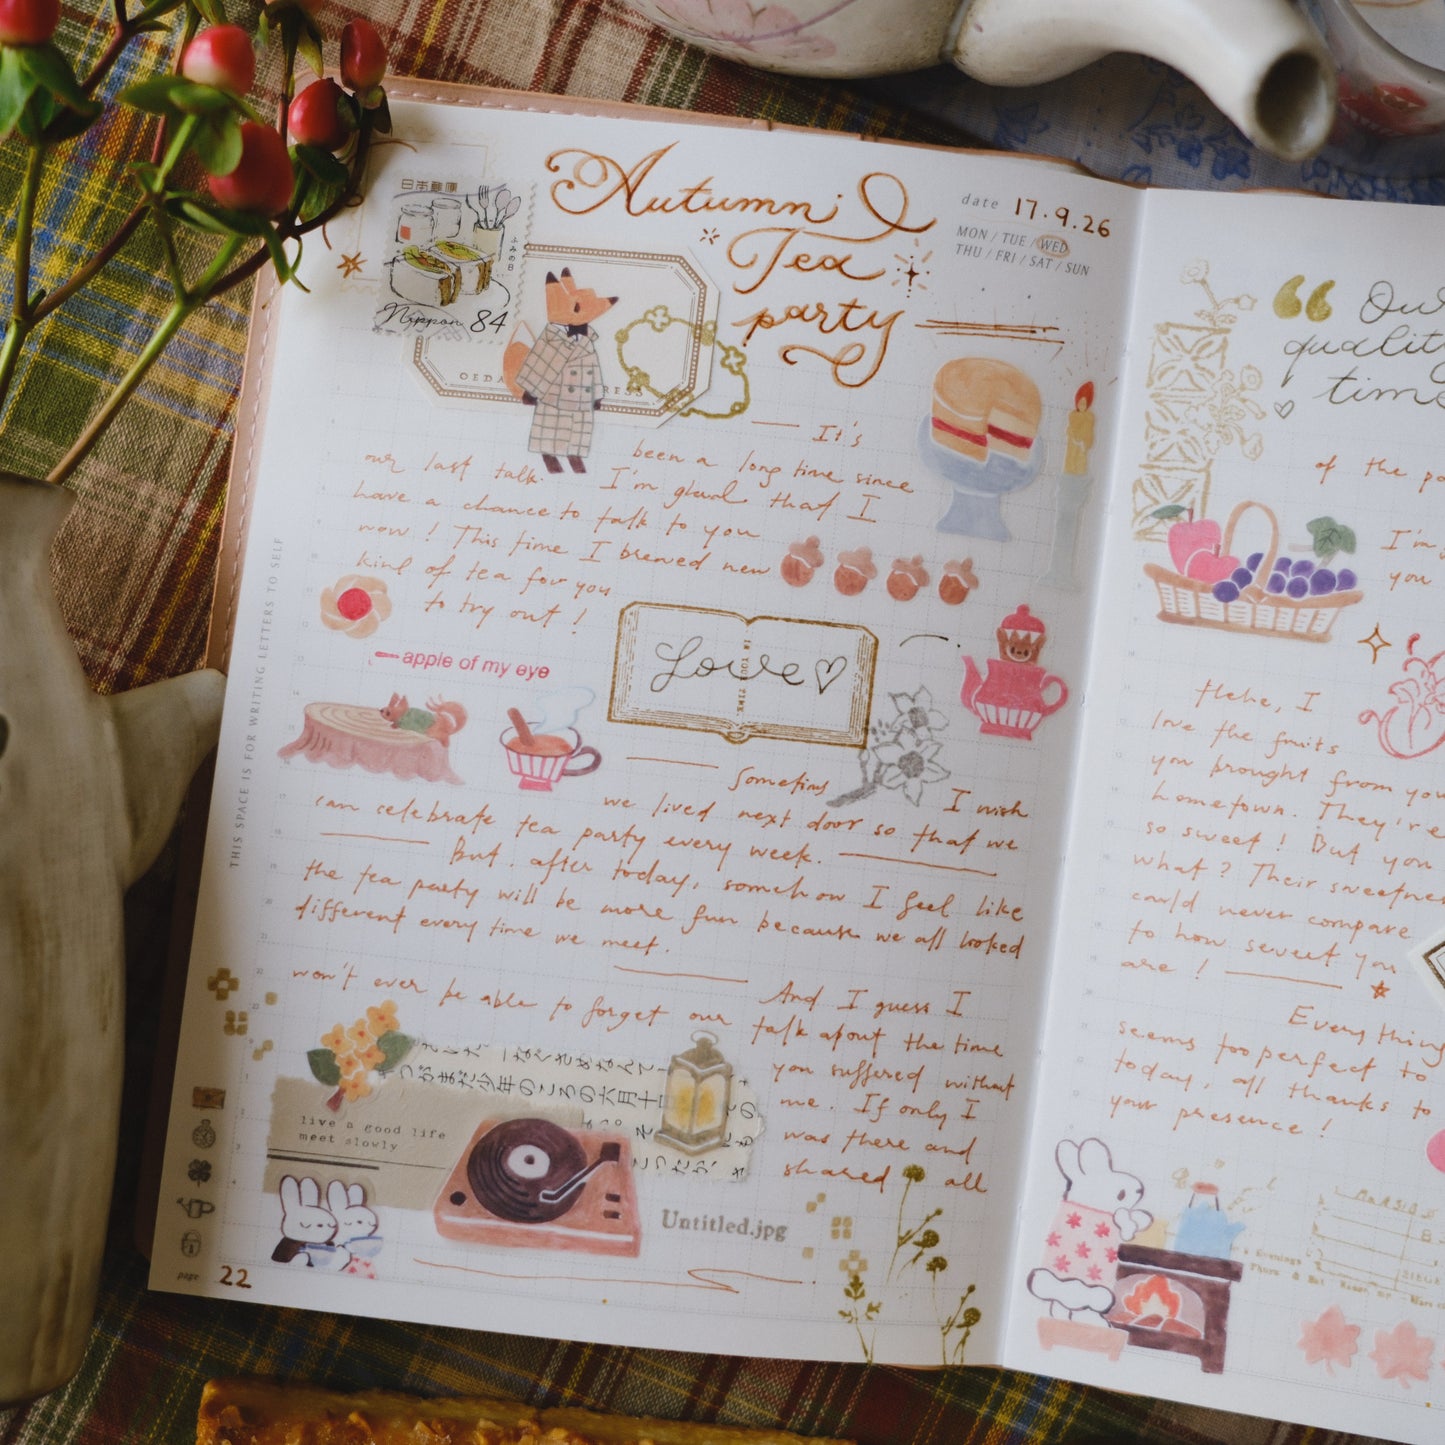 日本郵便
ふみの日
Nippon 84
Autumn
Tea
party
date 17.9.26
MON / TUE / WED
THU / FRI / SAT / SUN
It's
been a long time since
our last talk. I'm glad that I
have a chance to talk to you
now! This time I brewed new
kind of tea for you
to try out!
apple of my eye
Love
Sometims I wish
we lived next door so that we
can celebrate tea party every week.
But, after today, somehow I feel like
the tea party will be more fun because we all looked
different every time we meet.
And I guess I
won't ever be able to forget our talk about the time
you suffered without
me. If only I
was there and
shared all
live a good life
meet slowly
Untitled.jpg
page 22
THIS SPACE IS FOR WRITING LETTERS TO SELF
“ Our
quality
time
of the
I'm
you
Hehe, I
love the fruits
you brought from
hometown. They're
so sweet! But you
what? Their
could never compare
to how sweet you
are!
Everything
seems too perfect to
today, all thanks to
your presence!